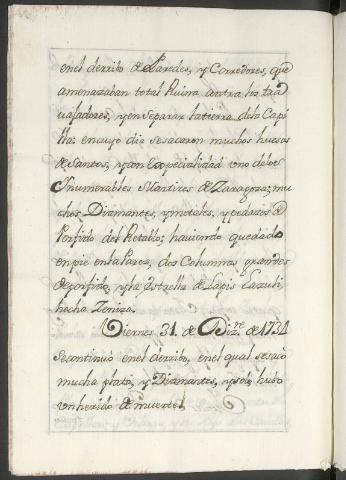 enel derrivo de Paredes, y Corredores, que
amenazaban total Ruina contra los tra
vajadores, y en separar la tierra dela Capi
lla: en cuyo dia se sacaron muchos huesos
de Santos, y con Expecialidad uno delos
Innumerables Martires de Zaragoza; mu
chos Diamantes, y metales, y pedazos de
Porfido del Retablo; haviendo quedado
en pie en la Pared, dos Columnas grandes
de porfido, y la Estrella de Lapis Lazuli
hecha Zeniza.
Viernes 31. de Dizre. de 1734
Se continuò enel derrivo, enel qual se sacò
mucha plata, y Diamantes, y solo hubo
un herido de muerte.